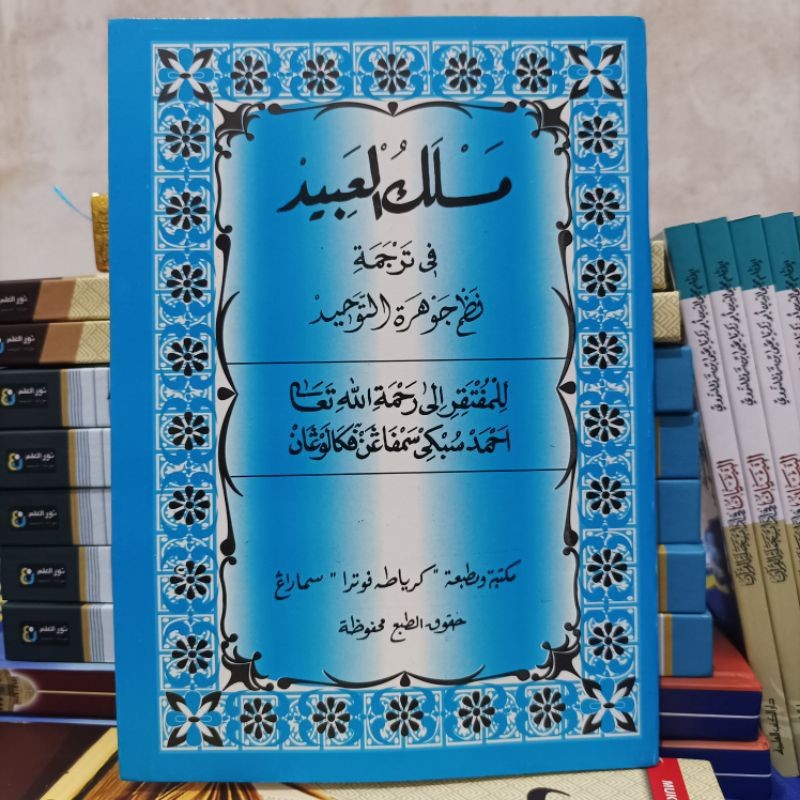 مَسْلَكُ الْعَبِيْدِ
فِى تَرْجَمَةِ
نَظْمِ جَوْهَرَةِ التَّوْحِيْدِ
لِلْمُفْتَقِرِ اِلَى رَحْمَةِ اللهِ تَعَالَى
اَحْمَدْ سُبْكِىْ سَمْفَاڠَنْ فكَالَوْڠَانْ
مكتبة ومطبعة "كرياطه فوترا" سماراڠ
حقوق الطبع محفوظة
نور العلم
نور العلم
نور العلم
نور العلم
نور العلم
نور العلم
نور العلم
التبيان
التبيان
التبيان
MUK